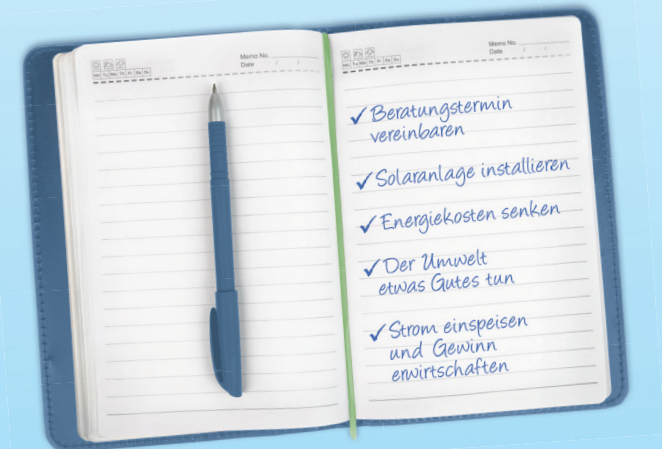 Memo No.
Date / /
Mo Tu We Th Fr Sa Su
Memo No.
Date / /
Mo Tu We Th Fr Sa Su
✓ Beratungstermin
vereinbaren
✓ Solaranlage installieren
✓ Energiekosten senken
✓ Der Umwelt
etwas Gutes tun
✓ Strom einspeisen
und Gewinn
erwirtschaften